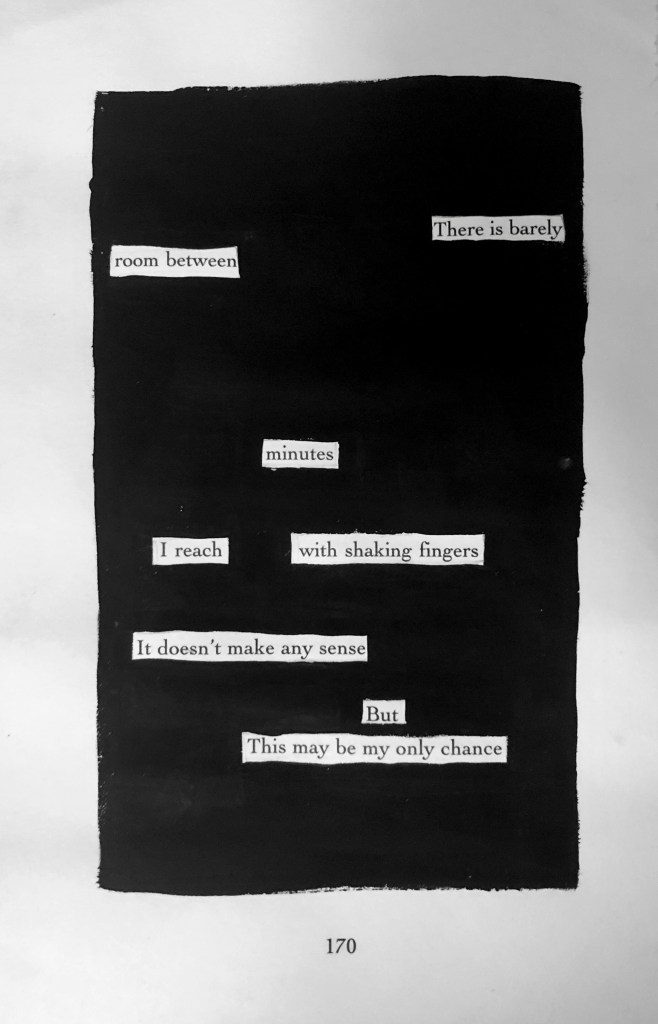 There is barely
room between
minutes
I reach with shaking fingers
It doesn't make any sense
But
This may be my only chance
170